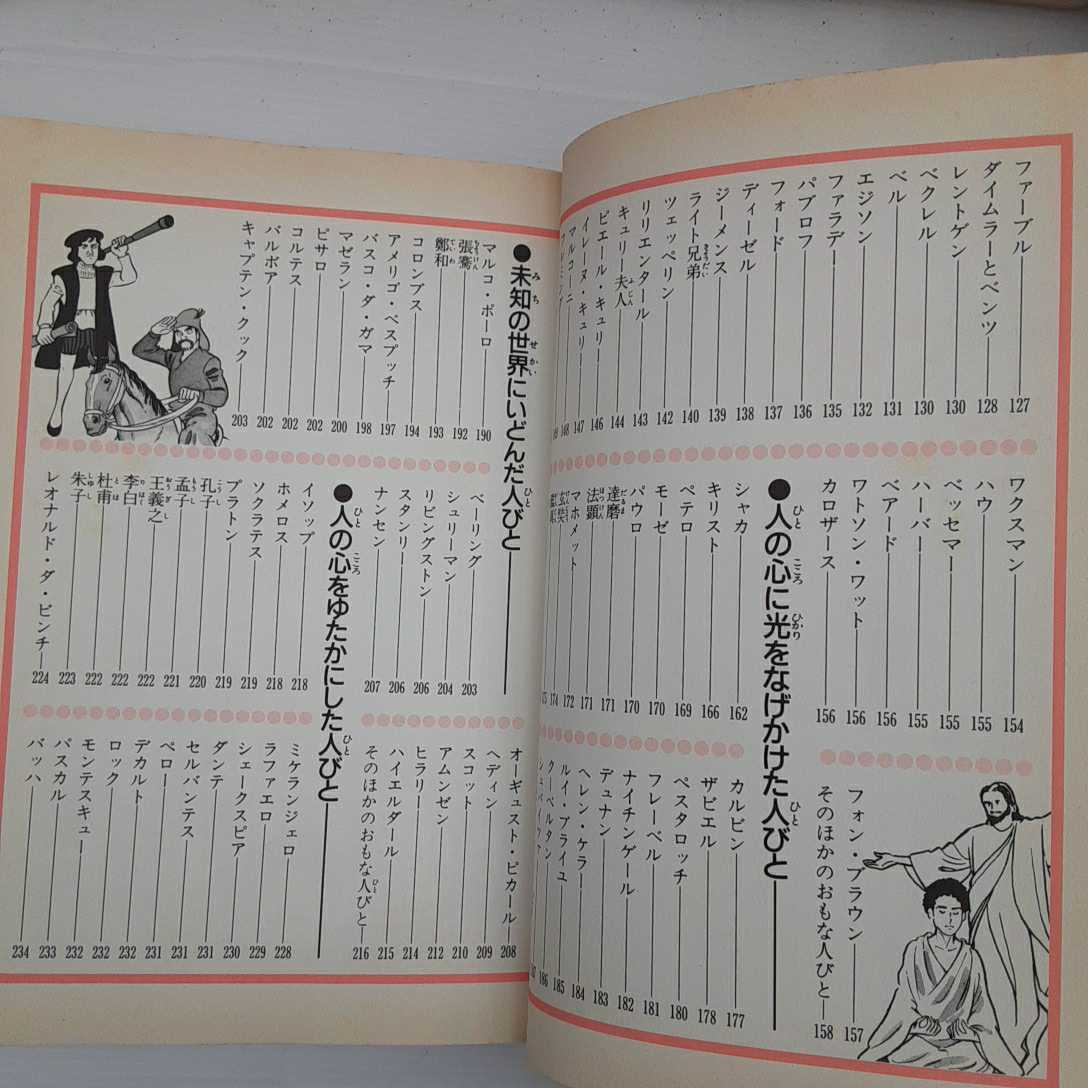 ファーブル 127
ダイムラーとベンツ 128
レントゲン 130
ベクレル 130
ベル 131
エジソン 132
ファラデー 135
パブロフ 136
フォード 137
ディーゼル 138
ジーメンス 139
ライト兄弟 140
ツェッペリン 142
リリエンタール 143
キュリー夫人 144
ピエール・キュリー 146
イレーヌ・キュリー 147
マルコーニ 148
ワクスマン 154
ハウ 155
ベッセマー 155
ハーバー 155
ベアード 156
ワトソン・ワット 156
カロザース 156
フォン・ブラウン 157
そのほかのおもな人びと 158
●人の心に光をなげかけた人びと
シャカ 162
キリスト 166
ペテロ 169
モーゼ 170
パウロ 170
達磨 171
法顕 171
マホメット 172
玄奘 174
カルビン 177
ザビエル 178
ペスタロッチ 180
フレーベル 181
ナイチンゲール 182
デュナン 183
ヘレン・ケラー 184
ルイ・ブライユ 185
クーベルタン 186
●未知の世界にいどんだ人びと
マルコ・ポーロ 190
張騫 192
鄭和 193
コロンブス 194
アメリゴ・ベスプッチ 197
バスコ・ダ・ガマ 198
マゼラン 200
ピサロ 202
コルテス 202
バルボア 202
キャプテン・クック 203
ベーリング 203
シュリーマン 204
リビングストン 206
スタンリー 206
ナンセン 207
オーギュスト・ピカール 208
ヘディン 209
スコット 210
アムンゼン 212
ヒラリー 214
ハイエルダール 215
そのほかのおもな人びと 216
●人の心をゆたかにした人びと
イソップ 218
ホメロス 218
ソクラテス 219
プラトン 219
孔子 220
孟子 221
王義之 222
李白 222
杜甫 222
朱子 223
レオナルド・ダ・ビンチ 224
ミケランジェロ 228
ラファエロ 229
シェークスピア 230
ダンテ 231
セルバンテス 231
ペロー 231
デカルト 232
ロック 232
モンテスキュー 232
パスカル 233
バッハ 234